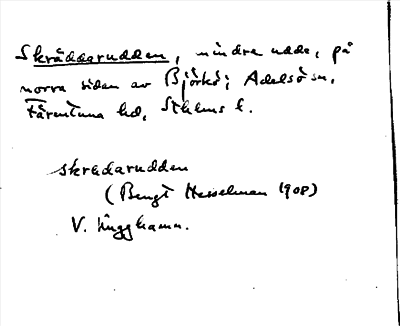 Skräddarudden, mindre udde, på
norra sidan av Björkö; Adelsö sn,
Färentuna hd, Sthlms l.
skredarudden
(Bengt Hesselman 1908)
V.